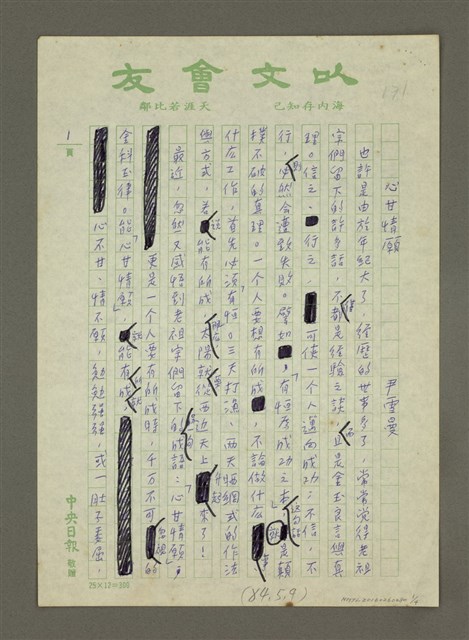 以文會友
海內存知己
天涯若比鄰
171
心甘情願
尹雪曼
也許是由於年紀大了，經歷的世事多了，常常覺得老祖
宗們留下的許多話，不僅都是經驗之談，而且是金玉良言與真
理。信之、行之，可使一個人邁向成功；不信、不
行，則必然會遭致失敗。譬如，「有恆為成功之本」這句話就是顛
撲不破的真理。一個人要想有所成，不論做什麼事
什麼工作，首先必須有「恆」。三天打漁、兩天晒網式的作法
與方式，若說能有所成，除非太陽就從西邊天上升起來了！
最近，忽然又感悟到老祖宗們留下的成語：「心甘情願」，
更是一個人要有所成時，千萬不可忽視的
金科玉律。能「心甘情願」，就能有所成就
心不甘、情不願，勉勉強強，或一肚子委屈，
1
頁
中央日報
敬贈
25×12=300
(84,5,9)